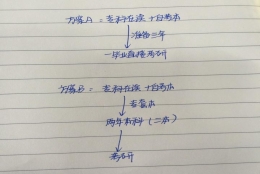 方案A：专科在读+自考本
准备三年
一毕业直接考研
方案B：专科在读+自考本
专套本
两年本科（二本）
考研